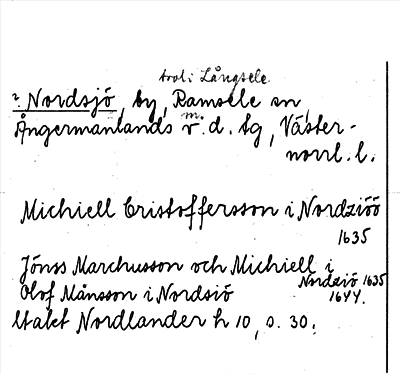 trol: Långsele
? Nordsjö, by, Ramsele sn,
Ångermanlands v. m. d. tg, Väster-
norrl. l.
Michiell Cristoffersson i Nordziöö
1635
Jönss Marchusson och Michiell i
Nordziö 1635
Olof Månsson i Nordsiö 1644.
Utakt Nordlander h 10, s. 30.